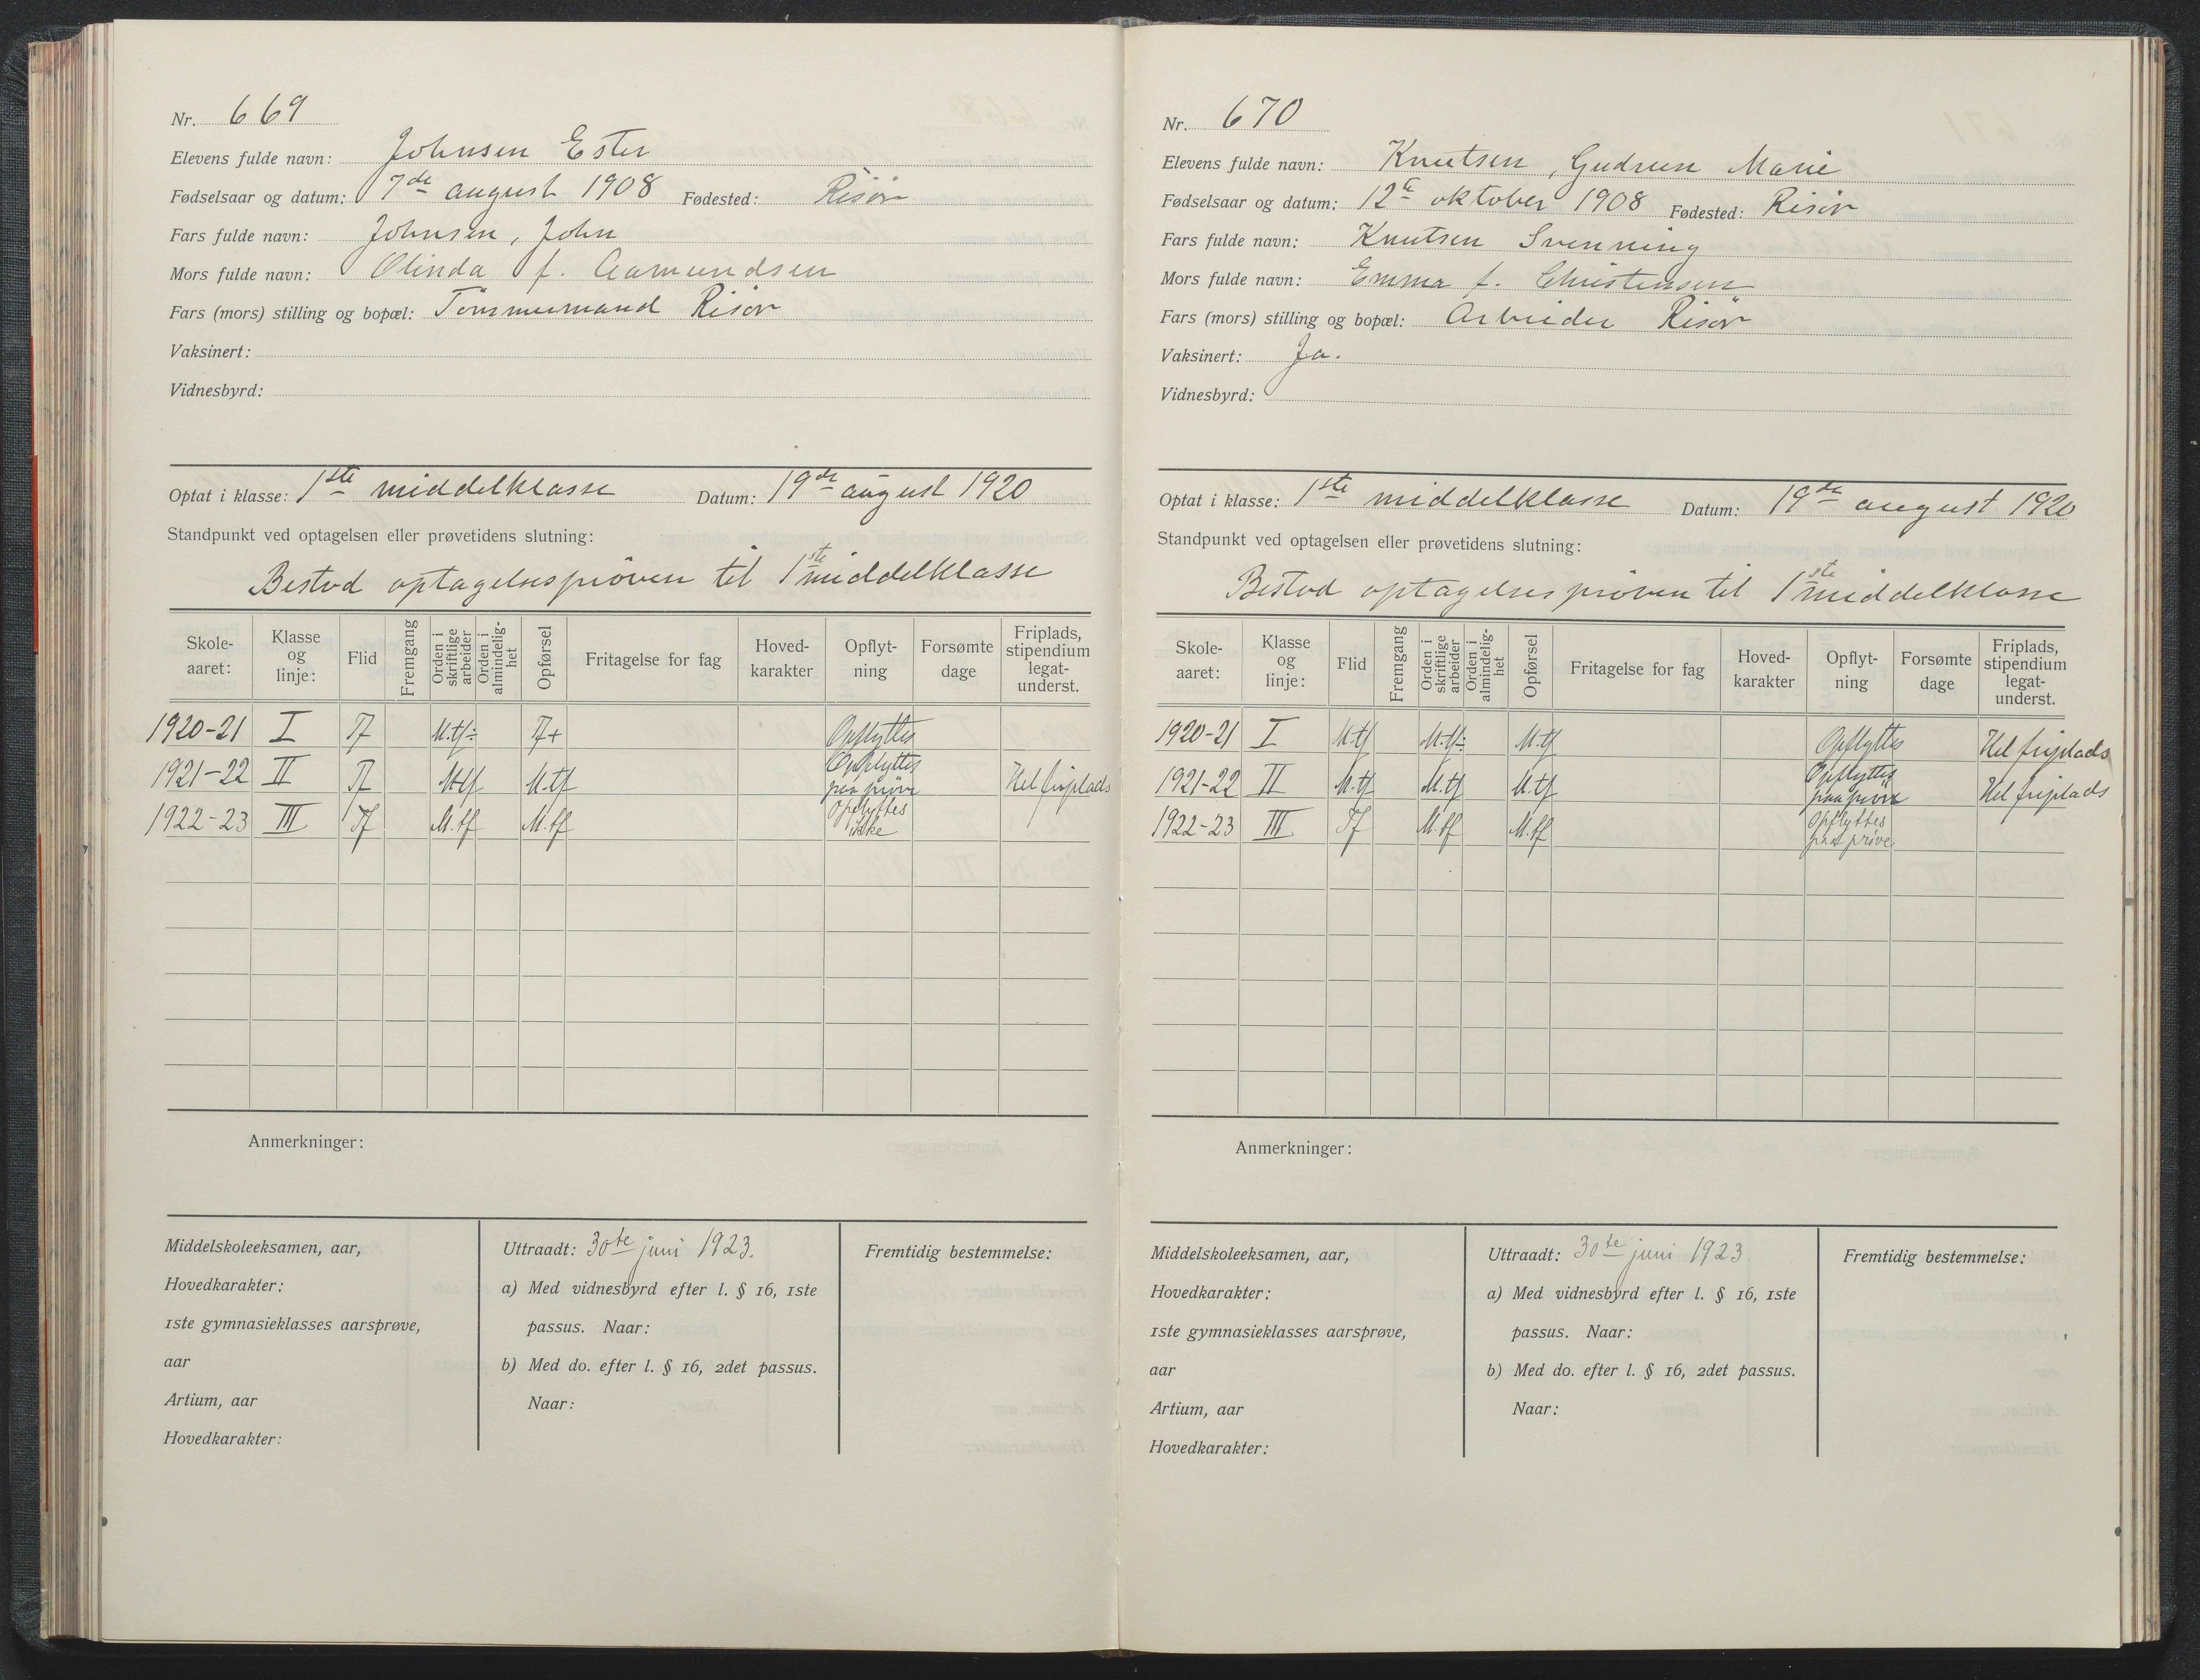 Nr. 669
Elevens fulde navn: Johnsen Ester
Fødselsaar og datum: 7de august 1908 Fødested: Risør
Fars fulde navn: Johnsen, John
Mors fulde navn: Olinda f. Aamundsen
Fars (mors) stilling og bopæl: Tömmermand Risör
Vaksinert:
Vidnesbyrd:
Optat i klasse: 1ste middelklasse Datum: 19de august 1920
Standpunkt ved optagelsen eller prøvetidens slutning:
Bestod optagelsesprøven til 1ste middelklasse
Skole-aaret: Klasse og linje: Flid Fremgang Orden i skriftlige arbeider Orden i almindelig-het Opførsel Fritagelse for fag Hoved-karakter Opflyt-ning Forsømte dage Friplads, stipendium legat-underst.
1920-21 I Tf M.tf÷ Tf+ Opflyttes
1921-22 II Tf Mtf M.tf Opflyttes paa prøve Hel friplads
1922-23 III Tf M.tf M.tf Opflyttes ikke
Anmerkninger:
Middelskoleeksamen, aar,
Hovedkarakter:
1ste gymnasieklasses aarsprøve,
aar
Artium, aar
Hovedkarakter:
Uttraadt: 30te juni 1923.
a) Med vidnesbyrd efter l. § 16, 1ste
passus. Naar:
b) Med do. efter l. § 16, 2det passus.
Naar:
Fremtidig bestemmelse:
Nr. 670
Elevens fulde navn: Knutsen, Gudrun Marie
Fødselsaar og datum: 12te oktober 1908 Fødested: Risør
Fars fulde navn: Knutsen Svenning
Mors fulde navn: Emma f. Christensen
Fars (mors) stilling og bopæl: Arbeider Risör
Vaksinert: Ja.
Vidnesbyrd:
Optat i klasse: 1ste middelklasse Datum: 19de august 1920
Standpunkt ved optagelsen eller prøvetidens slutning:
Bestod optagelsesprøven til 1ste middelklasse
Skole-aaret: Klasse og linje: Flid Fremgang Orden i skriftlige arbeider Orden i almindelig-het Opførsel Fritagelse for fag Hoved-karakter Opflyt-ning Forsømte dage Friplads, stipendium legat-underst.
1920-21 I M.tf M.tf÷ M.tf Opflyttes Hel friplads
1921-22 II M.tf M.tf M.tf Opflyttes paa prøve Hel friplads
1922-23 III Tf M.tf M.tf Opflyttes paa prøve
Anmerkninger:
Middelskoleeksamen, aar,
Hovedkarakter:
1ste gymnasieklasses aarsprøve,
aar
Artium, aar
Hovedkarakter:
Uttraadt: 30te juni 1923.
a) Med vidnesbyrd efter l. § 16, 1ste
passus. Naar:
b) Med do. efter l. § 16, 2det passus.
Naar:
Fremtidig bestemmelse: